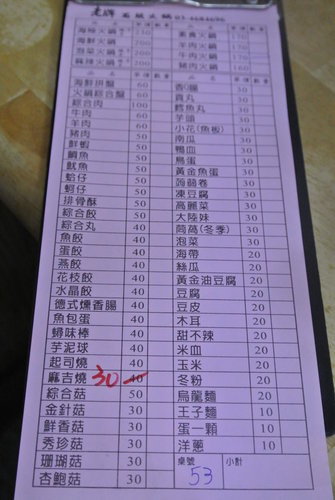 老牌 石頭火鍋
品名 單價 數量 品名 單價 數量
海鮮火鍋 200 牛肉火鍋 170
泡菜火鍋 羊肉火鍋 170
麻辣火鍋 200 豬肉火鍋 160
海鮮拼盤 60 香Q腸 30
火鍋綜合盤 60 貢丸 30
綜合肉 100 鱈魚丸 30
牛肉 60 芋頭 30
羊肉 60 小花(魚板) 30
豬肉 50 南瓜 30
鮮蝦 50 鴨血 30
鯛魚 50 鳥蛋 30
魷魚 50 黃金魚蛋 30
蛤仔 50 蒟蒻卷 30
蚵仔 50 凍豆腐 30
排骨酥 50 高麗菜 30
綜合餃 50 大陸妹 30
綜合丸 40 茼萵(冬季) 30
魚餃 40 泡菜 30
蛋餃 40 海帶 20
燕餃 40 絲瓜 20
花枝餃 40 黃金油豆腐 20
水晶餃 40 豆腐 20
德式燻香腸 40 豆皮 20
魚包蛋 40 木耳 20
蟳味棒 40 甜不辣 20
芋泥球 40 米血 20
起司燒 40 玉米 20
麻吉燒 30 40 冬粉 20
綜合菇 50 烏龍麵 20
金針菇 30 王子麵 10
鮮香菇 30 蛋一顆 10
秀珍菇 30 洋蔥 10
珊瑚菇 30 桌號 小計
杏鮑菇 30 53